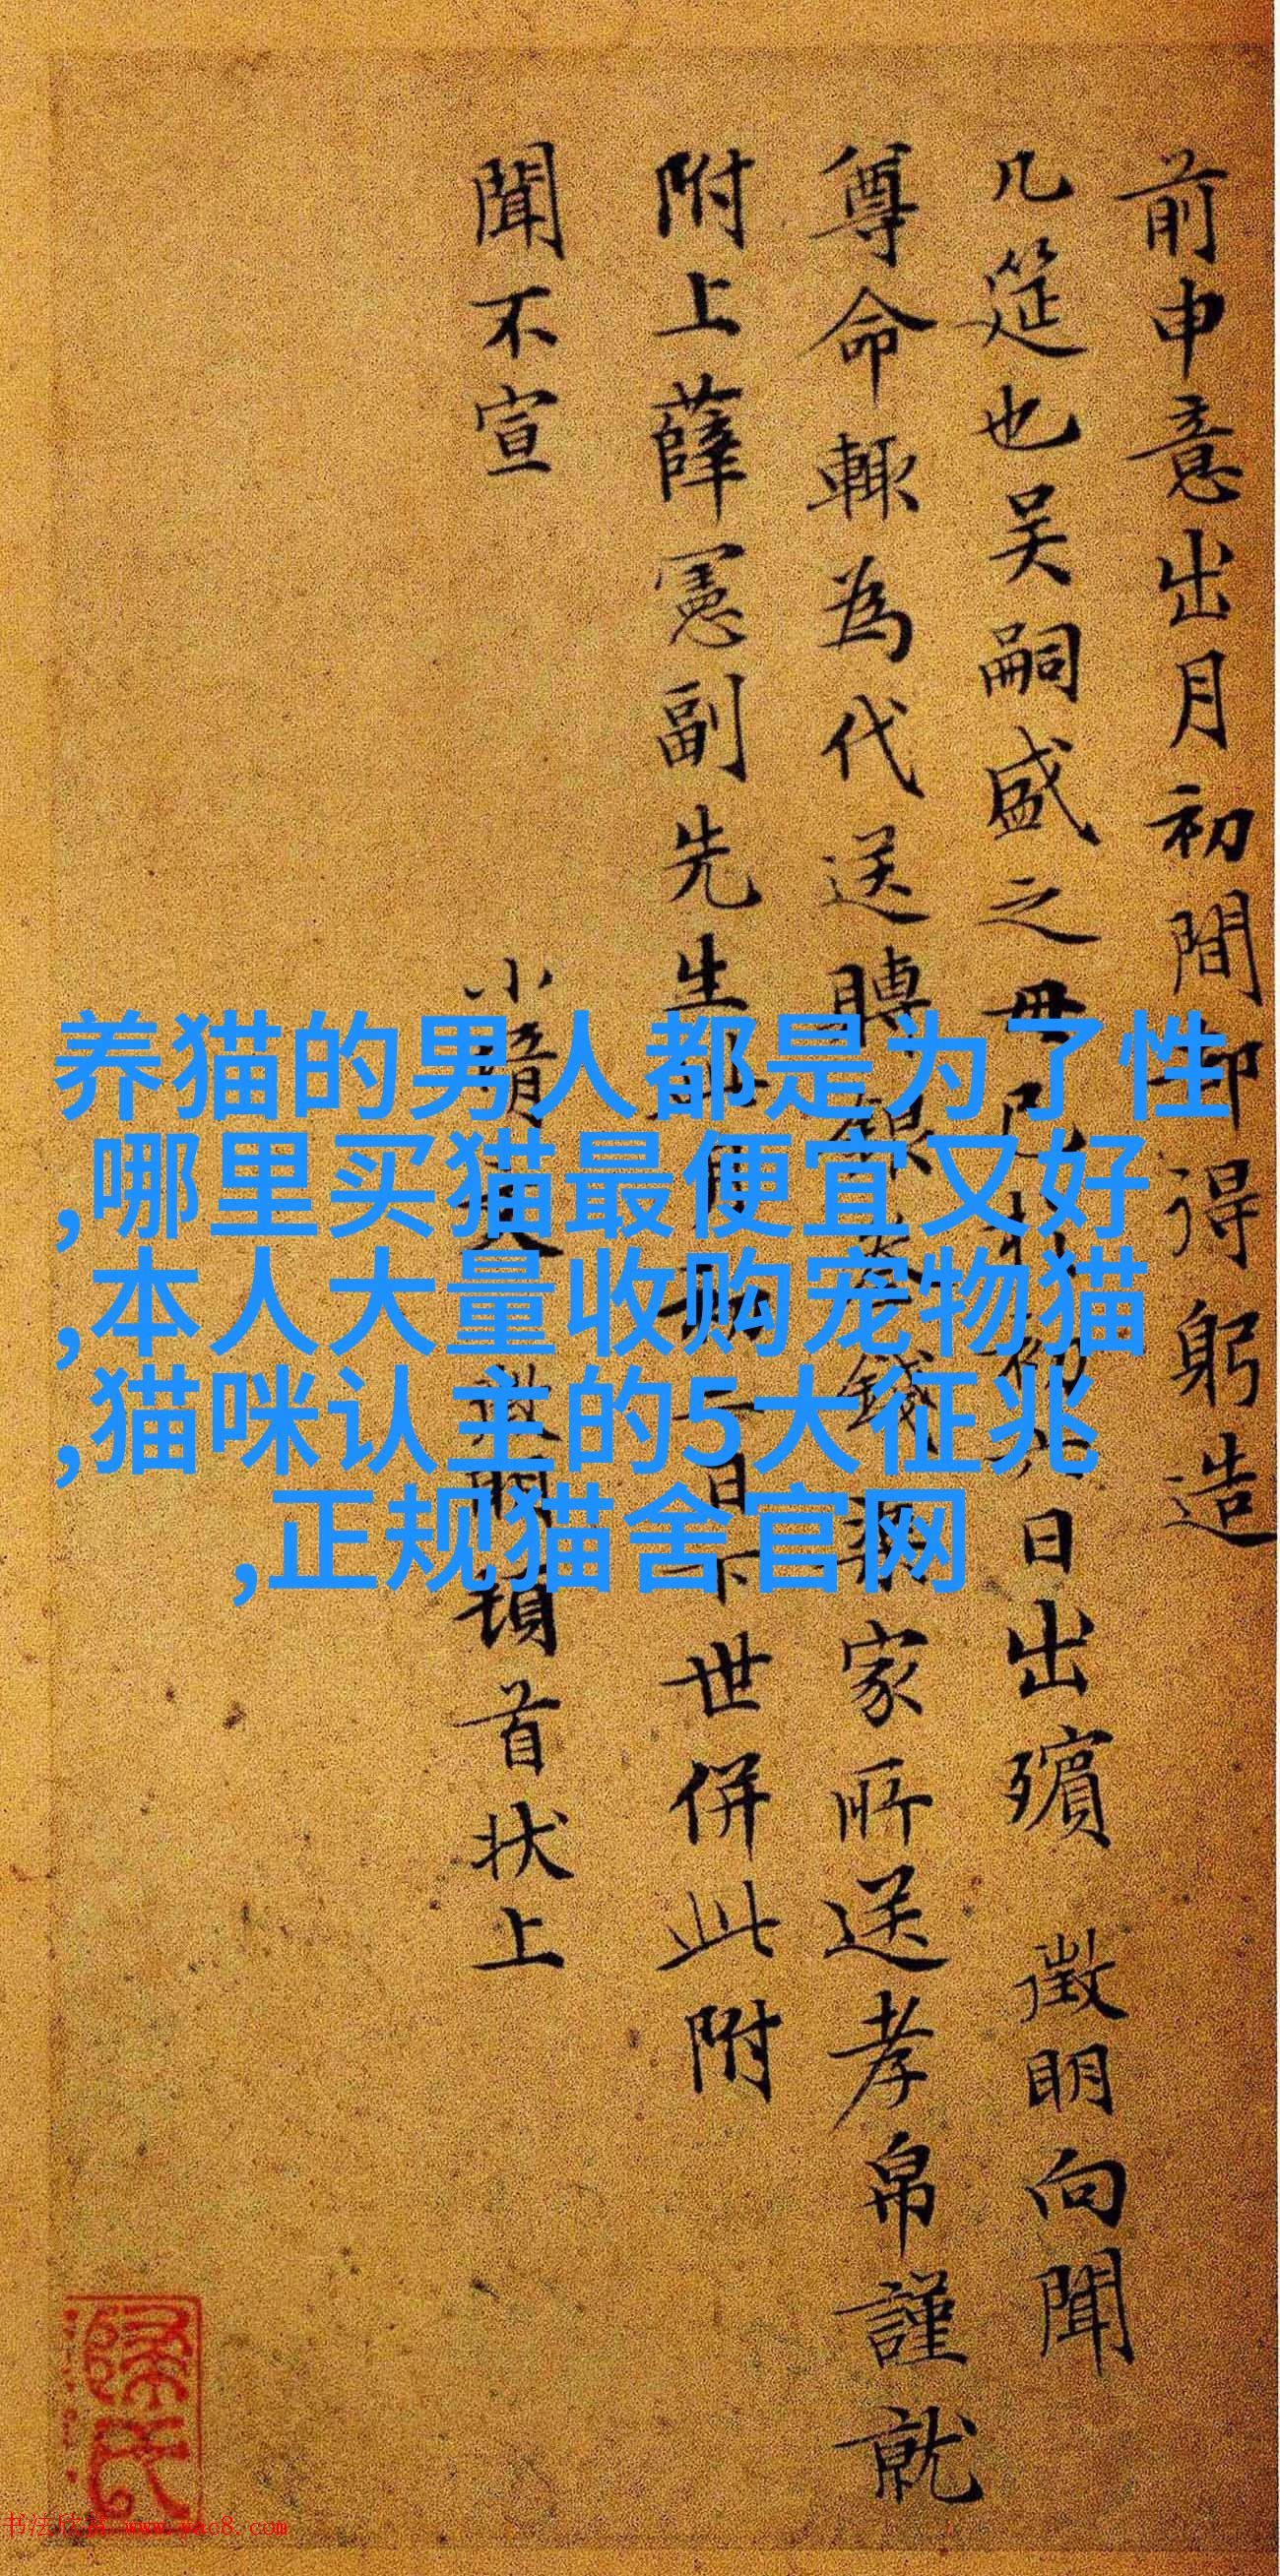 前申意出月初間却得躬造
几筵也吴嗣盛之毋已於初六日出殯 徵明向聞
尊命輙為代送轉銀錢家所送孝帛謹就
附上薛憲副先生世併此附
聞不宣
小啟頓首状上
养猫的男人都是为了性
,哪里买猫最便宜又好
,本人大量收购宠物猫
,猫咪认主的5大征兆
,正规猫舍官网
书法欣赏 www.yac8.com